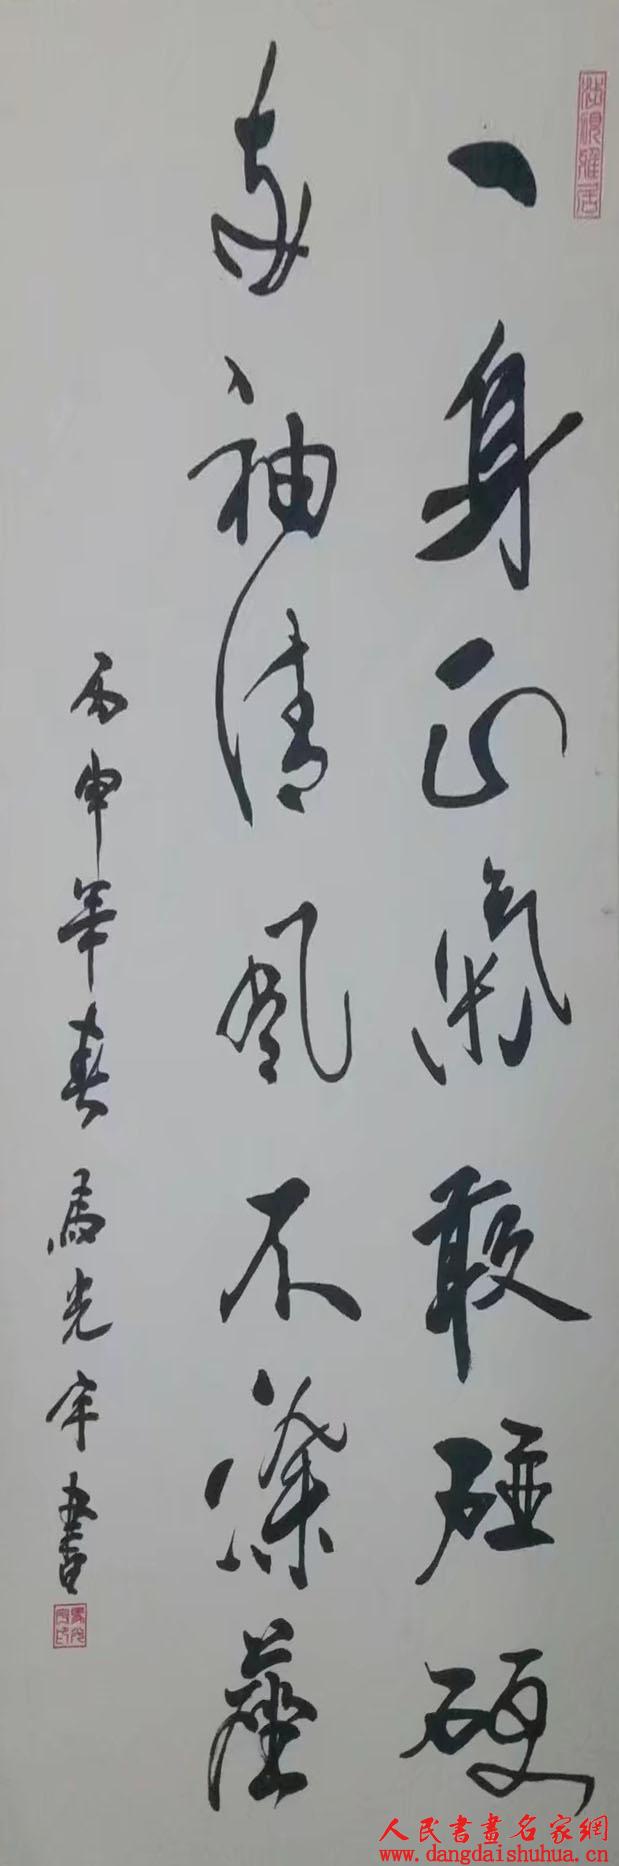 一身正氣敢碰硬
兩袖清風不染塵
丙申年春馬光宇書
人民書畫名家網
www.dangdaishuhua.cn